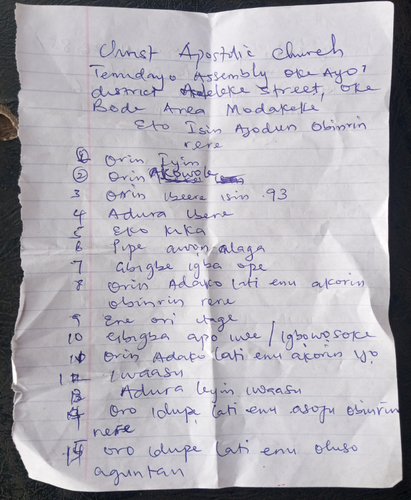 Christ Apostolic Church
Temidayo Assembly Oke Ayo
district Adeleke Street, Oke
Bode Area Modakeke
Eto Isin Ajodun Obinrin
rere
① Orin Iyin
② Orin Akowole
3 Orin ibeere isin .93
4 Adura ibere
5 Eko kika
6 Pipe awon alaga
7 Gbigbe igba ope
8 Orin Adako lati enu akorin
obinrin rere
9 Ere ori itage
10 Gbigba apo iwe / Igbowosoke
11 Orin Adako lati enu akorin yo
12 Iwaasu
13 Adura leyin iwaasu
Oro idupe lati enu asoju obinrin
rere
14 oro idupe lati enu oluso
aguntan